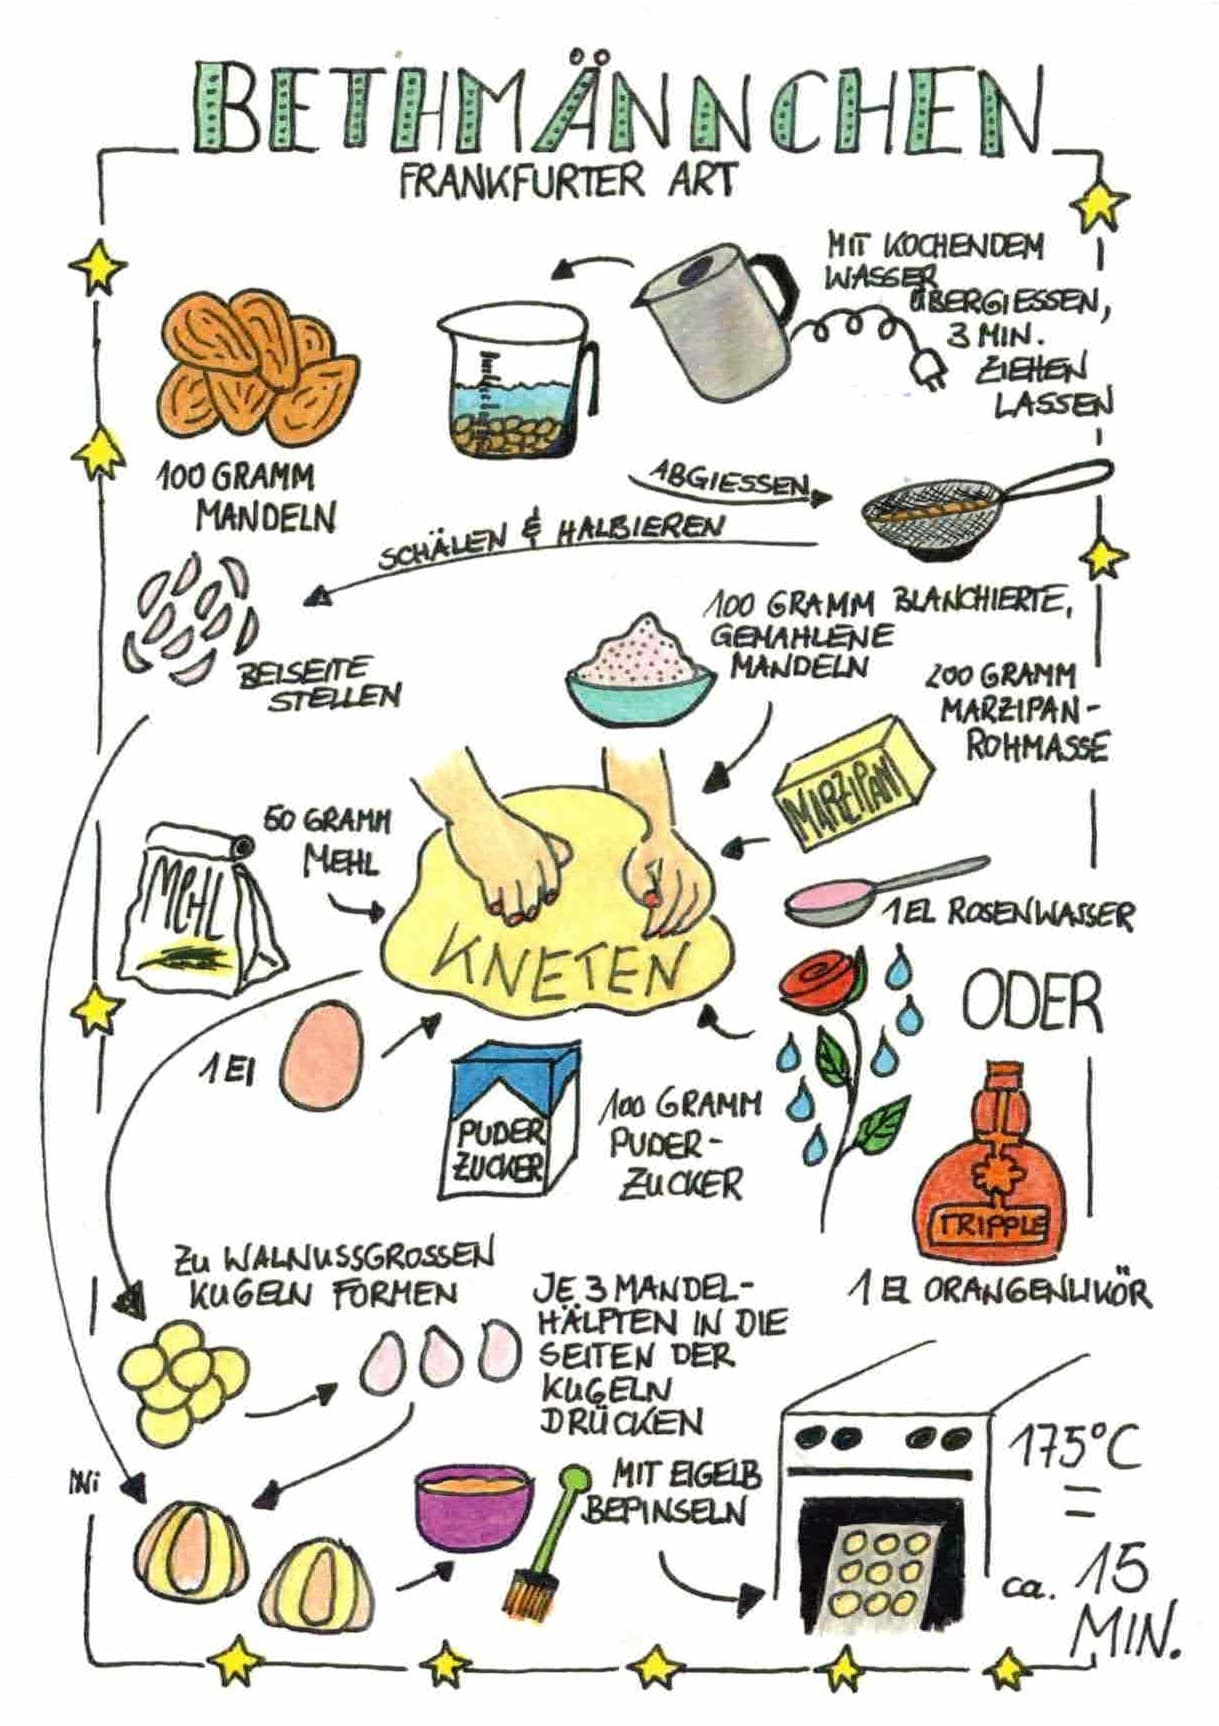 BETHMÄNNCHEN
FRANKFURTER ART
MIT KOCHENDEM
WASSER
ÜBERGIESSEN,
3 MIN.
ZIEHEN
LASSEN
100 GRAMM
MANDELN
ABGIESSEN
SCHÄLEN & HALBIEREN
BEISEITE
STELLEN
100 GRAMM BLANCHIERTE,
GEMAHLENE
MANDELN
200 GRAMM
MARZIPAN-
ROHMASSE
MARZIPAN
50 GRAMM
MEHL
MEHL
1 EL ROSENWASSER
KNETEN
ODER
1 EI
PUDER
ZUCKER
100 GRAMM
PUDER-
ZUCKER
TRIPPLE
1 EL ORANGENLIKÖR
ZU WALNUSSGROSSEN
KUGELN FORMEN
JE 3 MANDEL-
HÄLFTEN IN DIE
SEITEN DER
KUGELN
DRÜCKEN
MIT EIGELB
BEPINSELN
175°C
=
ca. 15
MIN.
Ni